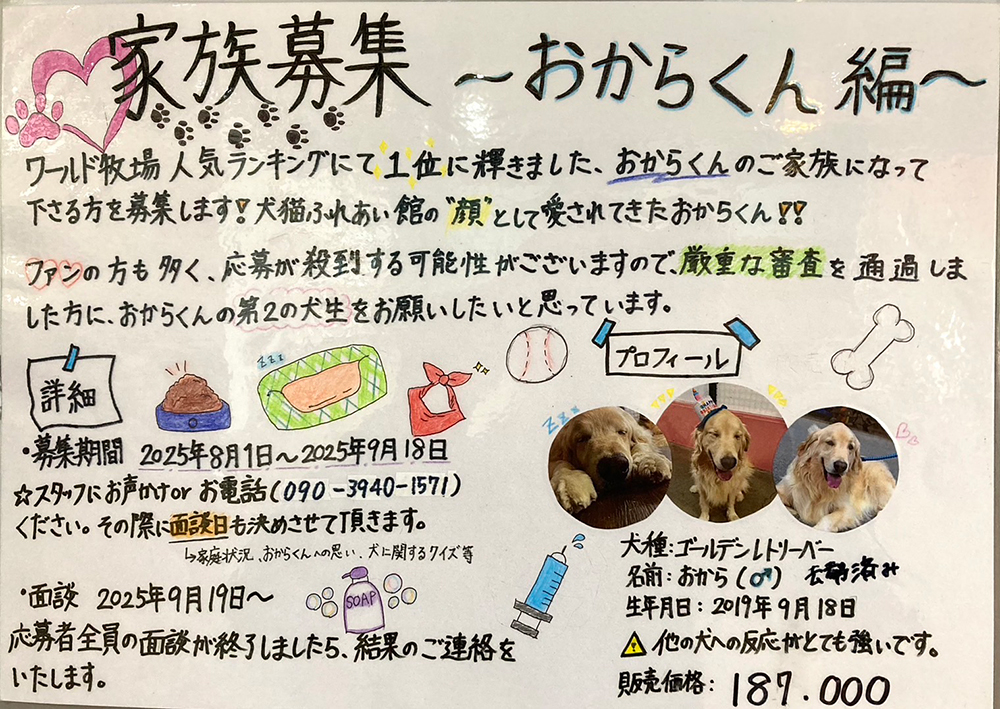 家族募集 〜おからくん編〜
ワールド牧場 人気ランキングにて1位に輝きました、おからくんのご家族になって
下さる方を募集します!犬猫ふれあい館の"顔"として愛されてきたおからくん!!
ファンの方も多く、応募が殺到する可能性がございますので、厳重な審査を通過しま
した方に、おからくんの第2の犬生をお願いしたいと思っています。
詳細
zzz
プロフィール
・募集期間 2025年8月1日〜2025年9月18日
☆スタッフにお声かけor お電話(090-3940-1571)
ください。その際に面談日も決めさせて頂きます。
↳家庭状況、おからくんへの思い、犬に関するクイズ等
・面談 2025年9月19日〜
SOAP
応募者全員の面談が終了しましたら、結果のご連絡を
いたします。
zzz
犬種:ゴールデンレトリーバー
名前:おから(♂) 去勢済み
生年月日:2019年9月18日
⚠他の犬への反応がとても強いです。
販売価格: 187.000